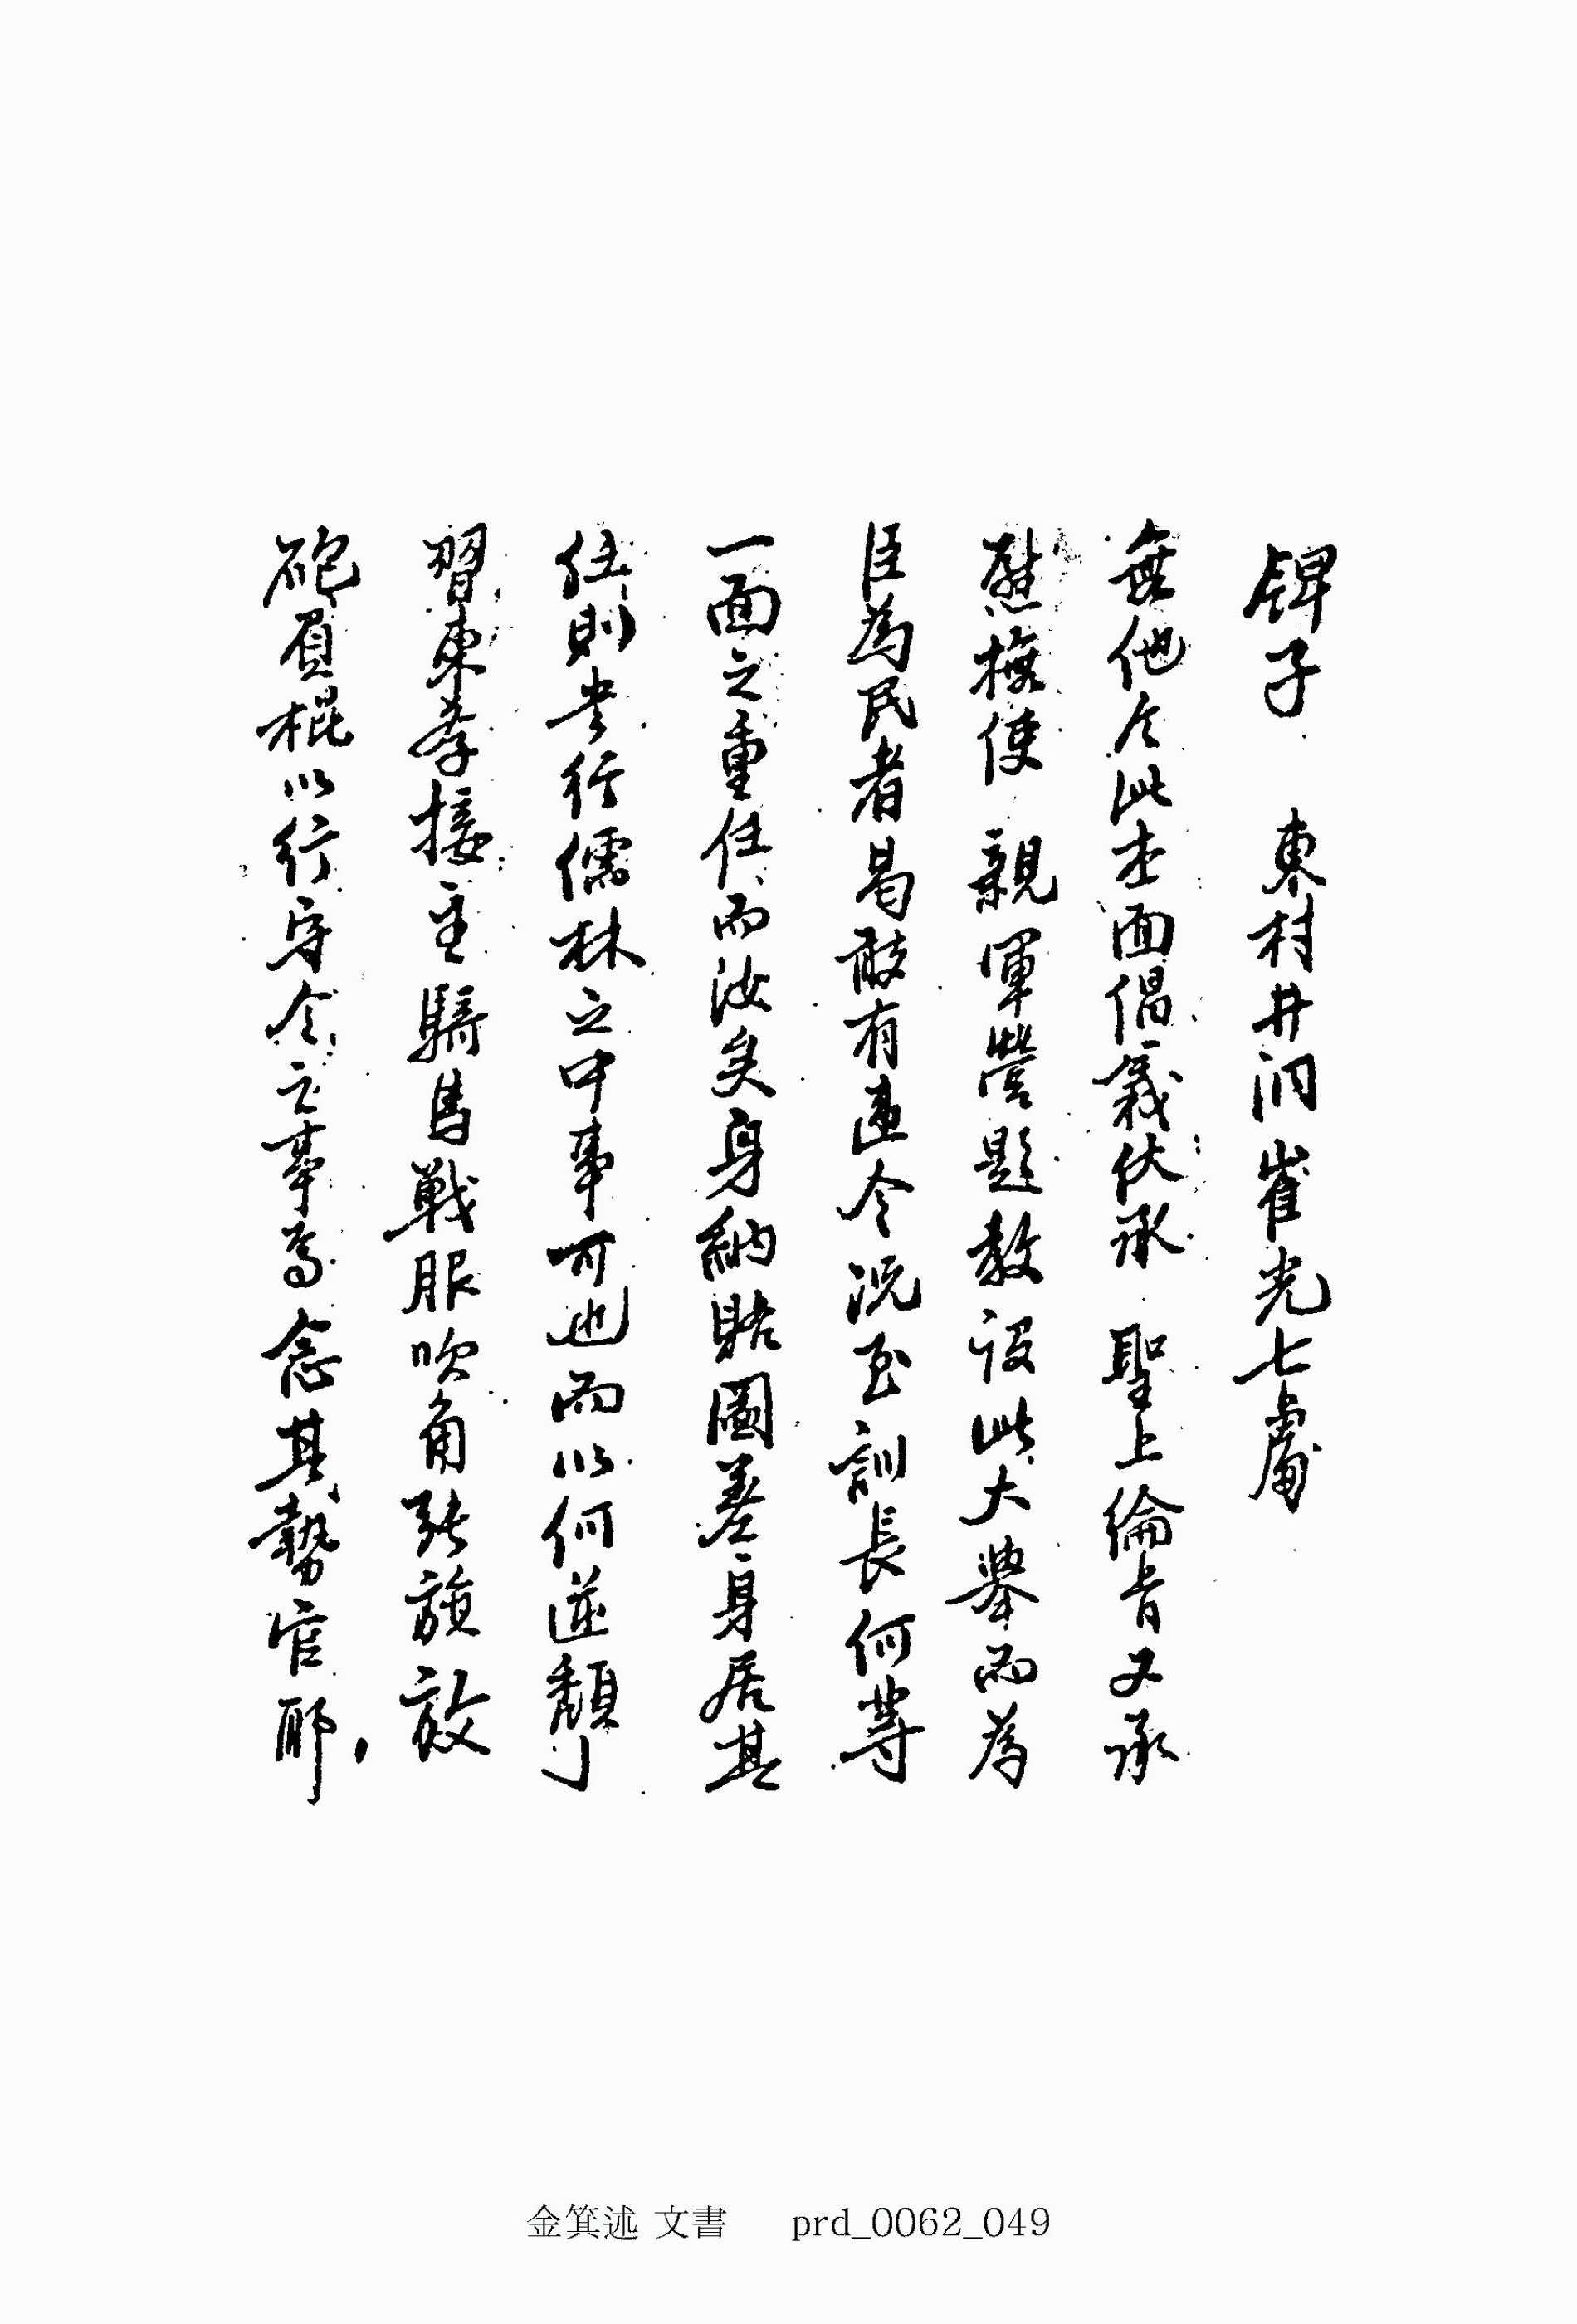 鍀子 東村井洞崔光七處
無他今此本面倡義伏承 聖上綸旨又承
慰撫使 親軍營題敎設此大擧而爲
臣爲民者曷敢有違令況至訓長何等
一面之重任而汝矣身納賂圖差身居其
任則其行儒林之中事可也而以何逆類
習東學接主騎馬戰服吹角張旗放
砲負棍以行守令之事爲念其勢官耶
金箕述 文書 prd_0062_049